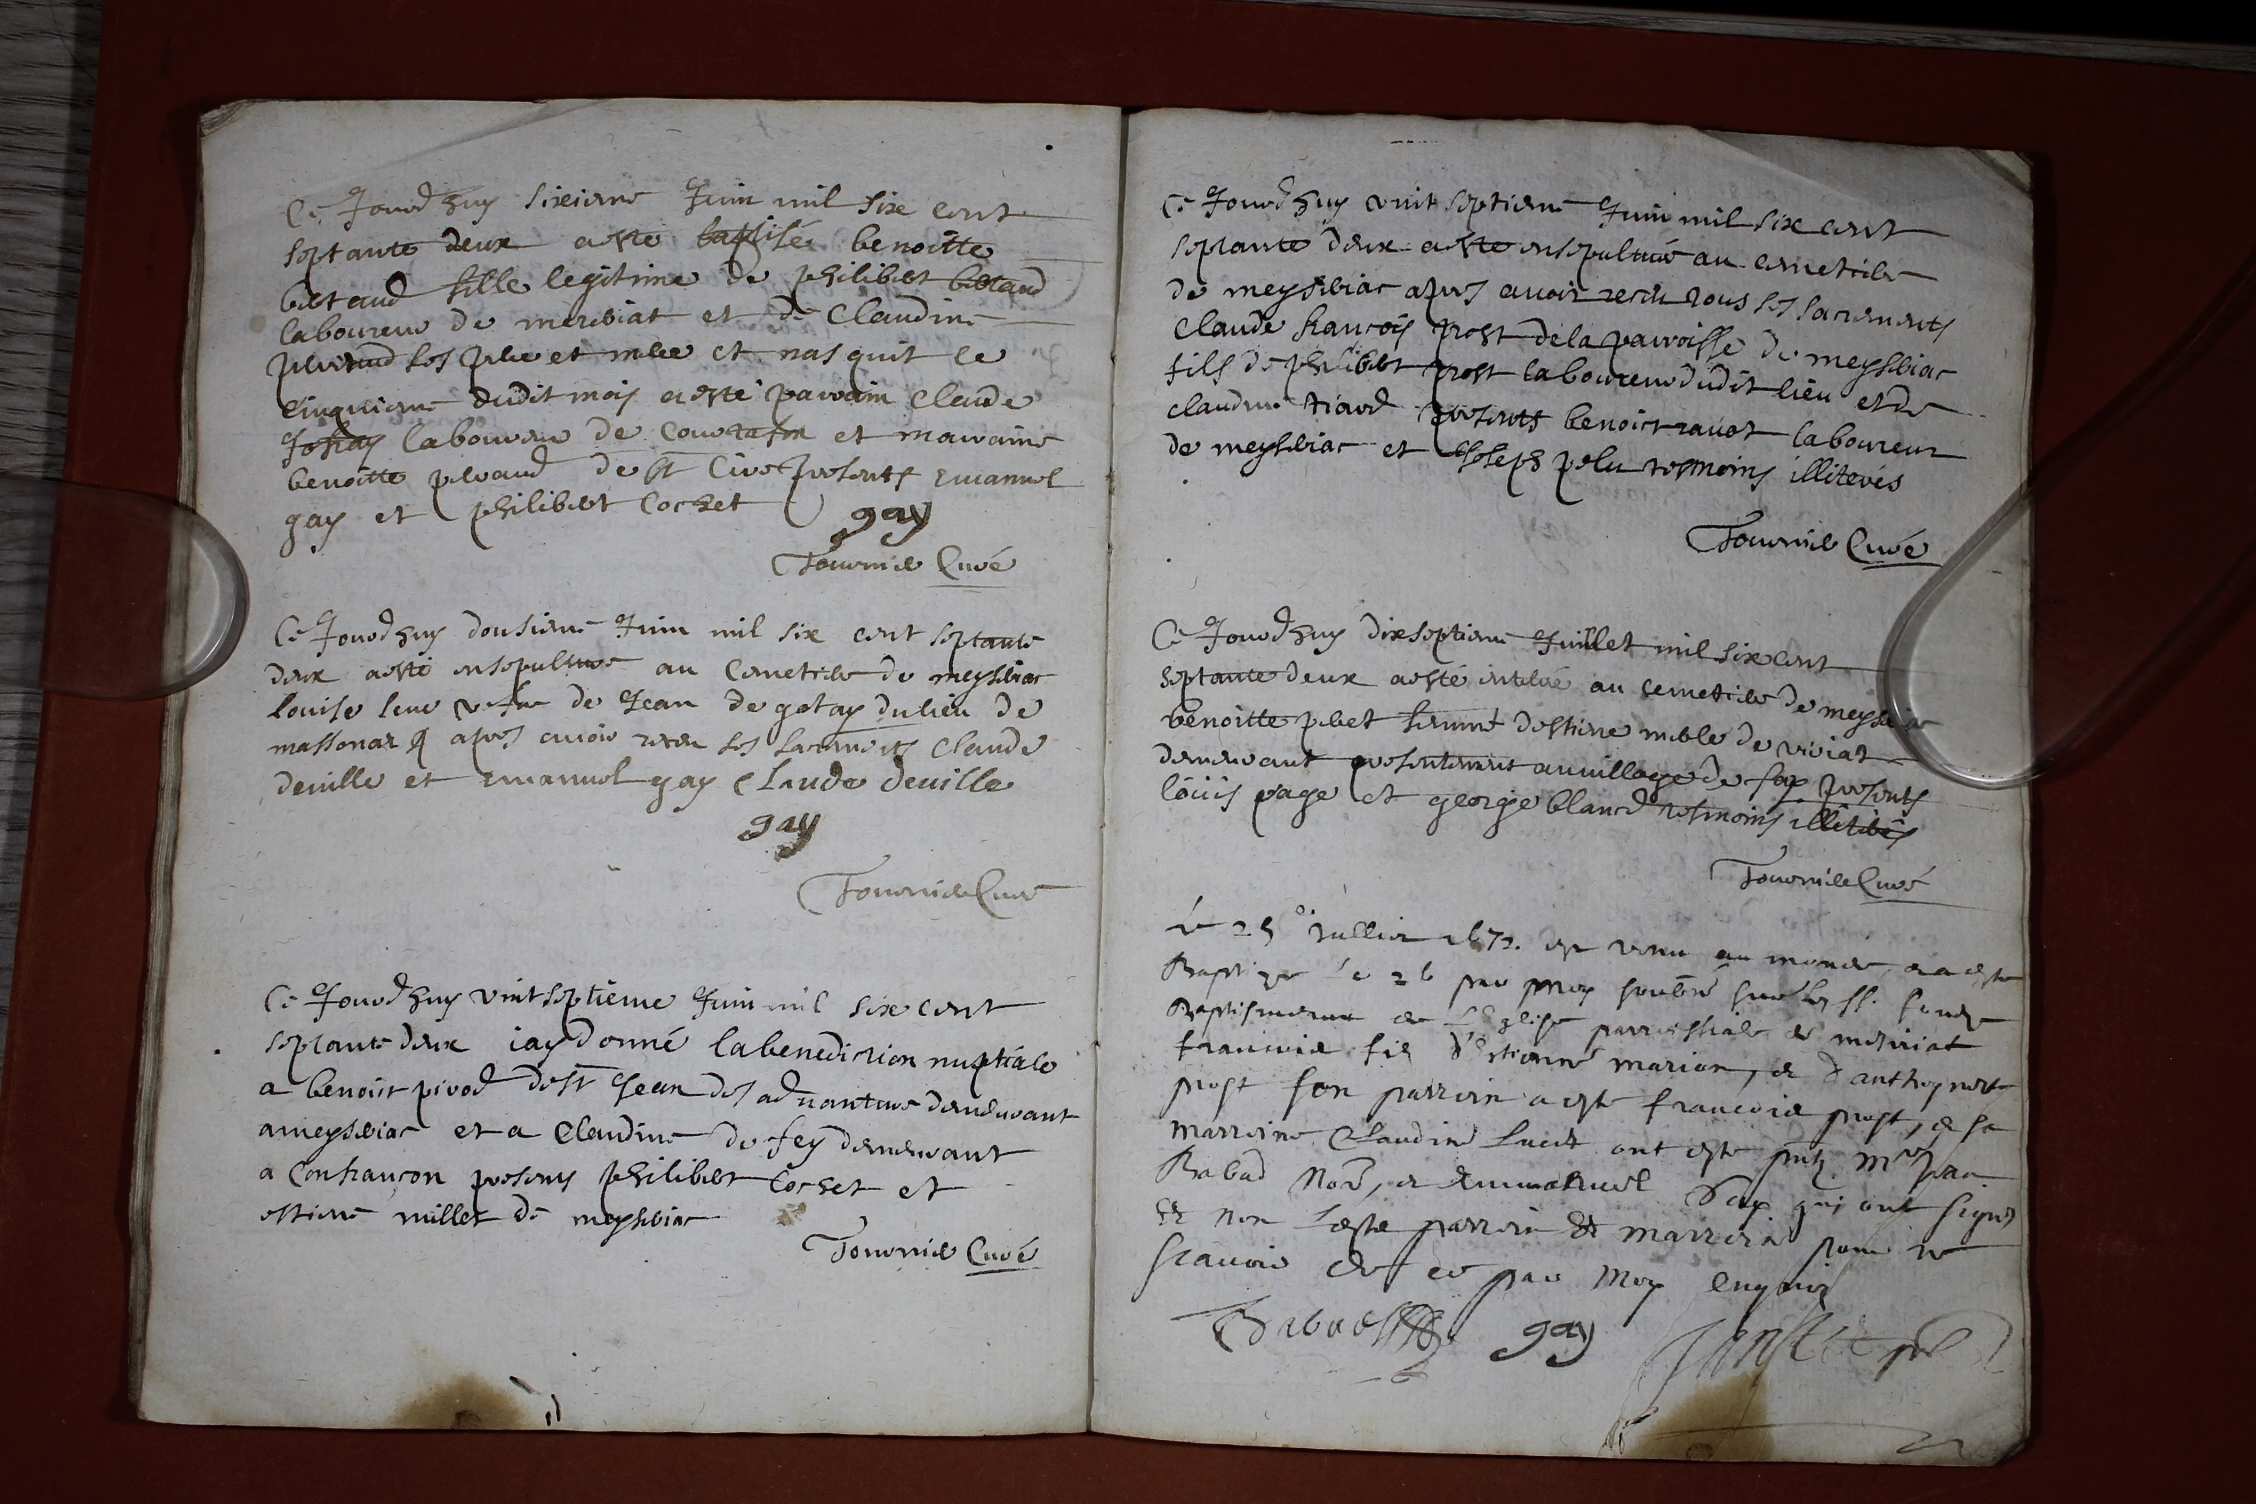 Ce Jourd huy sixieme Juin mil six cent
septante deux a esté baptisée benoitte
bertaud fille legitime de philibert bertaud
laboureur de meiriat et de Claudine
perraud ses pere et mere et nasquit le
cinquieme dudit mois a esté parrain Claude
laboureur de et marraine
benoitte peraud de st Cire presents Emanuel
gay et philibert Cochet gay
Tournier Curé
Ce Jourd huy dousieme Juin mil six cent septante
deux a esté ensepulture au Cemetiere de meysiriac
louise vefve de Jean de gotay du lieu de
massonas apres avoir receu ses sacrements Claude
deville et Emanuel gay Claude deville
gay
Tournier Curé
Ce Jourd huy vint septieme Juin mil six cent
septante deux iay donné la benediction nuptiale
a benoist pirod de st Jean des adventure demeurant
a meysiriac et a Claudine de fey demeurant
a Confrançon presens philibert Cochet et
estiene millet de meysiriac
Tournier Curé
Ce Jourd huy vint septieme Juin mil six cent
septante deux a esté ensepulturé au cemetiere
de meysiriac apres avoir receu tous ses sacrements
Claude françois prost de la parroisse de meysiriac
fils de philibert prost laboureur dudit lieu et de
claudine presents benoict ravot laboureur
de meysiriac et Joseph pelu tesmoins illiterés
Tournier Curé
Ce Jourd huy dixseptieme Juillet mil six cent
septante deux a esté enterré au cemetiere de meysiriac
benoitte femme destiene de viriat
demeurant presentement au village de fay presents
loüis page et george blanc tesmoins illiterés
Tournier Curé
Le 25e Juillet 1672. est venu au monde, et a esté
Baptizé le 26 par moy sur les ss. fondz
Baptismaux de L'Eglise parroissiale de meyriat
francois filz d'estienne marion, et d'anthoynette
prost son parrein a esté francois prost, et sa
marreine Claudine ont esté
Babad et Emmanuel Gay qui ont signés
et non parrein et marreine pour ne
scavoir de ce par moy enquis
Babad gay